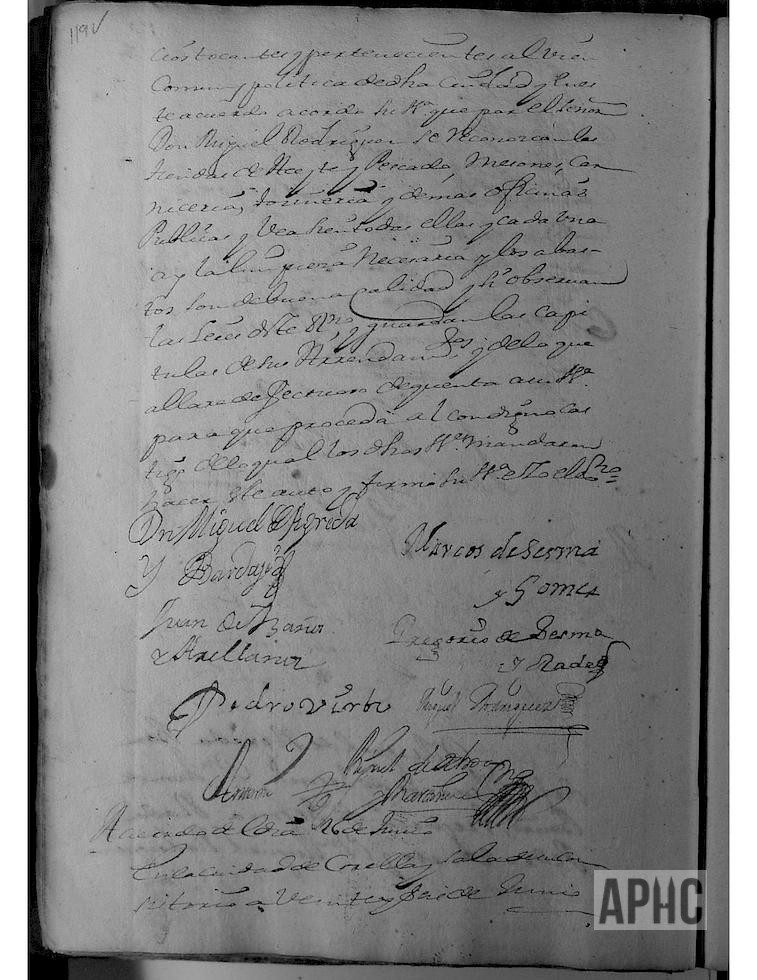 119v
cios tocantes y pertenecientes al vien
Comun y politica de dha ciudad y en es
te acuerdo acordo su Sª que por el señor
Don Miguel Rodriguez se reconozcan las
tiendas de Aceyte y Pescado, Mesones, Car
niceria, tocineria y demas oficinas
Publicas y vea si en todas ellas y cada vna
ay la limpieza Necesaria y los abas-
tos son de buena calidad y si observan
las Leies de este Rno y guardan las capi
tulas de sus Arrendam.tos y de lo que
allare defectuoso de quenta a su Sª
para que proceda al condigno cas
tigo de lo qual los dhos SS.es mandaron
hacer este auto y firmo su Sª e Yo el Ssno=
Dn Miguel de Agreda
Y Bardaji
Marcos de Sesma
y Gomez
Juan de Baños
y Arellano
Gregorio de Sesma
y Rada
Pedro Virto
Miguel Rodriguez
Miguel de
Acuerdo de Corª 26 de Junio
En la ciudad de Corella y sala de su Con
sitorio a Veinte y seis de Junio
APHC